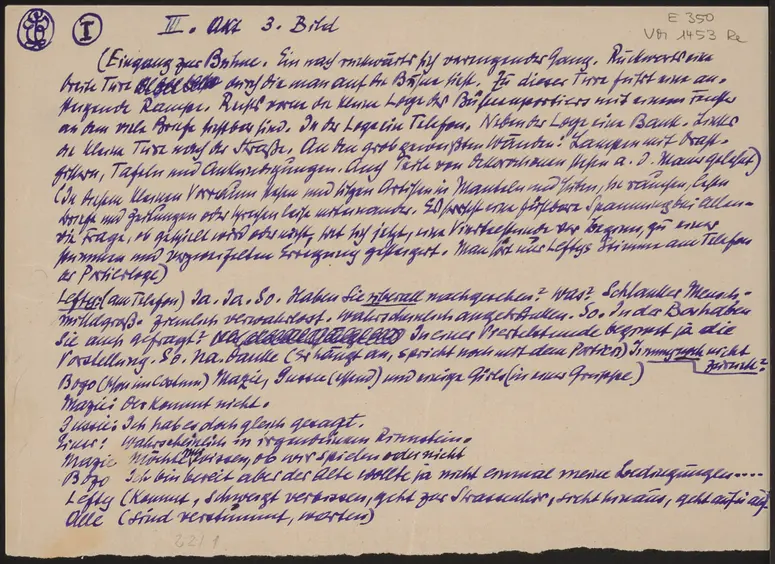 I
III. Akt 3. Bild
E 350
(Eingang zur Bühne. Ein nach rückwärts sich verengender Gang. Rückwerts eine
breite Türe durch die man auf die Bühne sieht. Zu dieser Türe führt eine an-
steigende Rampe. Rechts vorne die kleine Loge des Bühnenportiers mit einem Fenster
an dem viele Briefe sichtbar sind. In der Loge ein Telefon. Neben der Loge eine Bank. Links
die kleine Türe nach der Straße. An den grob geweißten Wänden: Lampen mit Draht-
gittern, Tafeln und Ankündigungen. Auch Teile von Dekorationen stehen a. d. Mauer gelehnt)
(In diesem kleinen Vorraum stehen und sitzen Artisten in Mänteln und Hüten, sie rauchen, lesen
Briefe und Zeitungen oder sprechen leise miteinander. Es herrscht eine fühlbare Spannung bei Allen-
die Frage, ob gespielt wird oder nicht, hat sich jetzt, eine Viertelstunde vor Beginn, zu einer
stummen und verzweifelten Erregung gesteigert. Man hört nur Leftys Stimme am Telefon
der Portierloge)
Lefty: (am Telefon) Ja. Ja. So. Haben Sie überall nachgesehen? Was? Schlanker Mensch-
mittelgroß. Ziemlich verwahrlost. Wahrscheinlich angetrunken. So. In der Bar haben
Sie auch gefragt? In einer Viertelstunde beginnt ja die
Vorstellung. So. Na. Danke (er hängt an, spricht noch mit dem Portier) nicht
zurück?
Bogo (schon im Costüm) Mazie, Gussie und einige Girls (in einer Gruppe)
Mazie: Der kommt nicht.
Gussie: Ich hab es doch gleich gesagt.
Einer: Wahrscheinlich in irgendeinem Rinnstein.
Mazie Möchte nur wissen, ob wir spielen oder nicht
Bozo Ich bin bereit aber der Alte wollte ja nicht einmal meine Bedingungen....
Lefty (kommt, schweigt verbissen, geht zur Strassentür, sieht hinaus, geht auf u. ab)
Alle (sind verstimmt, warten)
22/1